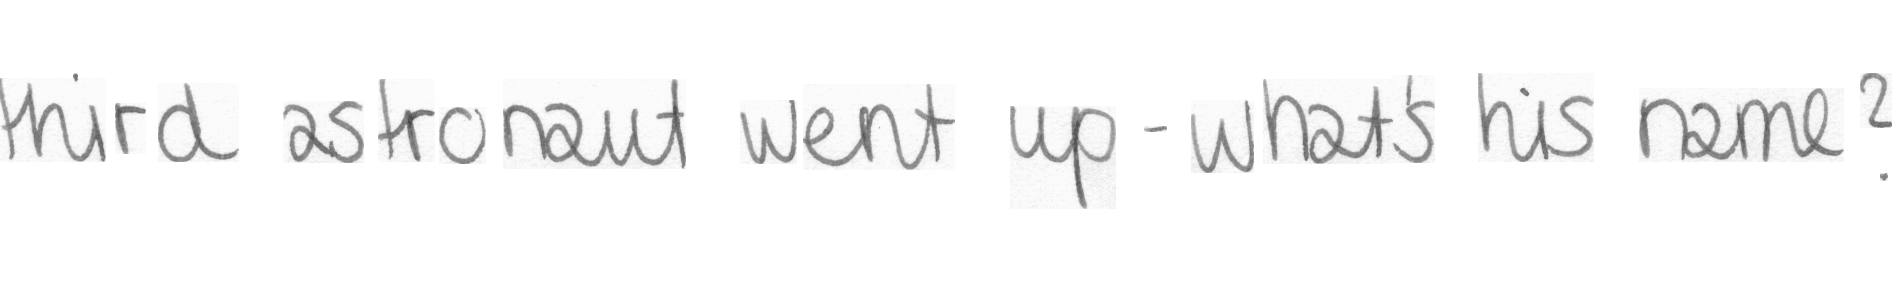 third astronaut went up - what's his name?